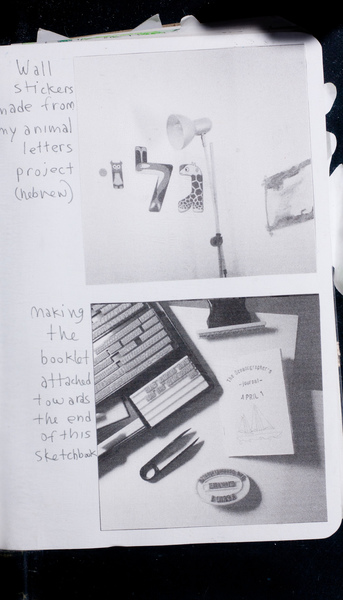 Wall
stickers
made from
my animal
letters
project
(hebrew)
making
the
booklet
attached
towards
the end
of this
sketchbook
APRIL